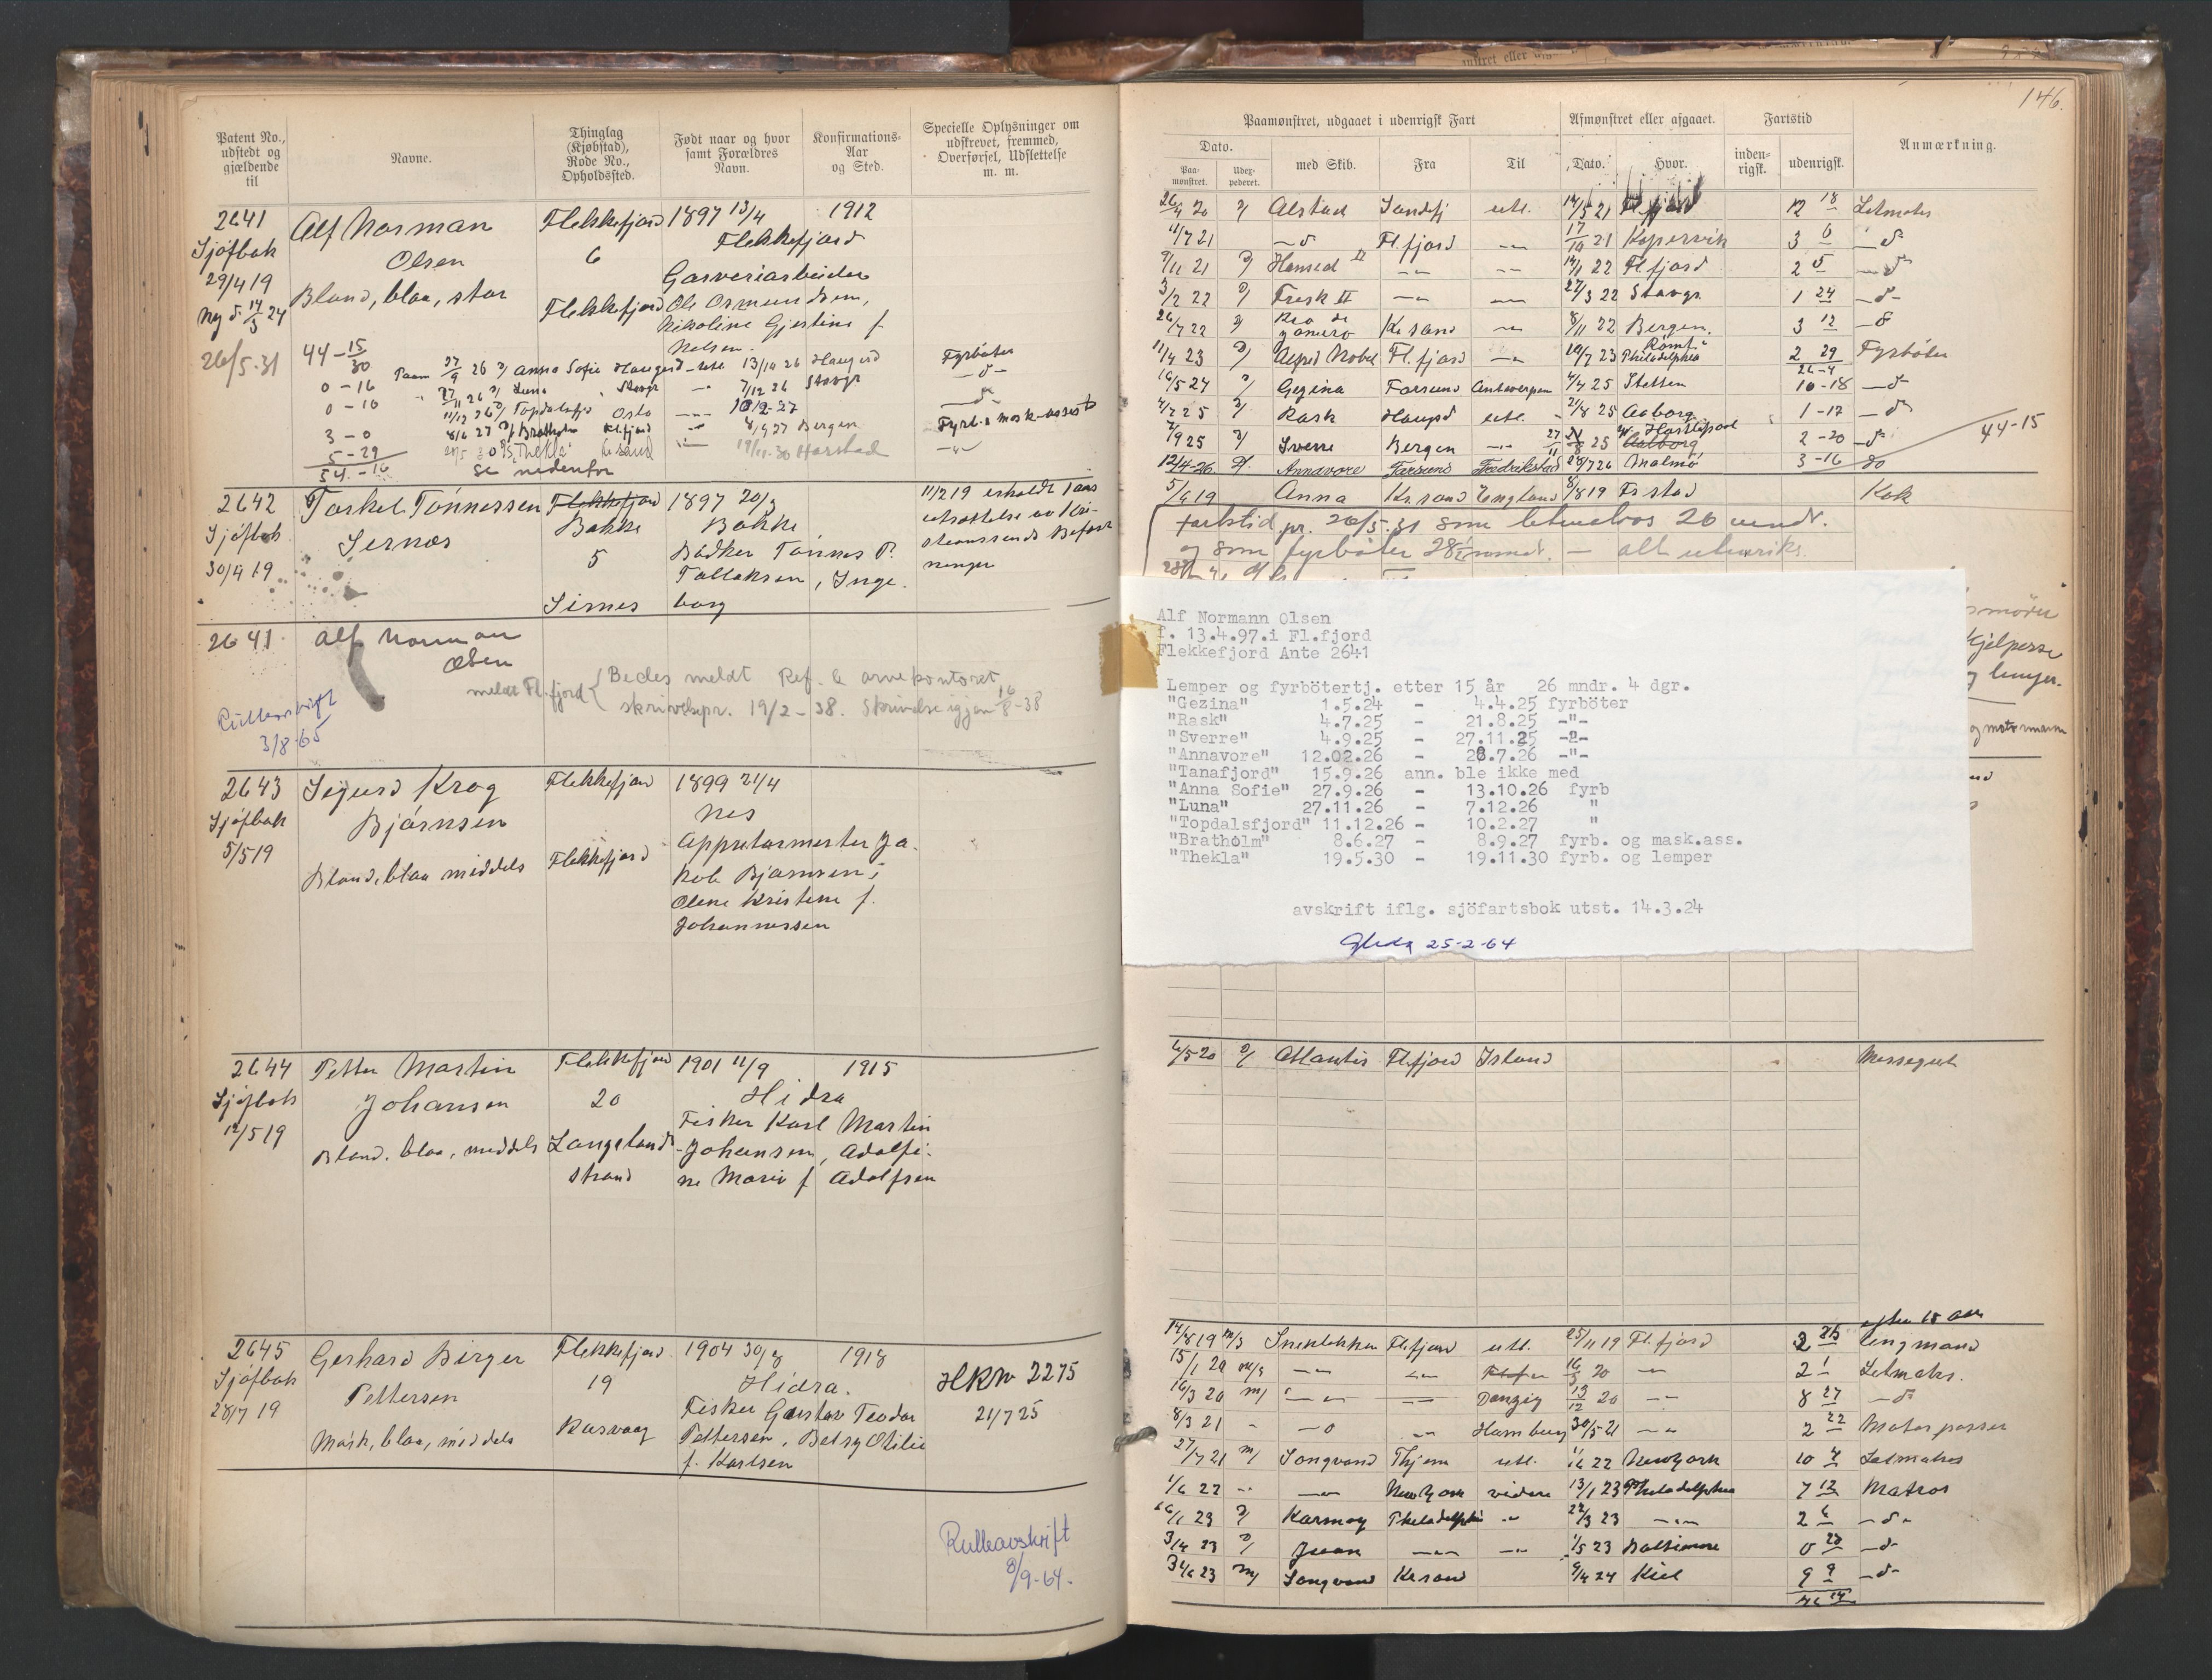 146.
Patent No., udstedt og gjældende til
Navne.
Thinglag (Kjøbstad), Rode No., Opholdssted.
Født naar og hvor samt Forældres Navn.
Konfirmations-Aar og Sted.
Specielle Oplysninger om udskrevet, fremmed, Overførsel, Udslettelse m. m.
2641 Alf Norman Flekkefjord 1897 13/4 1912
Sjøfbok Olsen 6 Flekkefjord
29/4 19 Garveriarbeider
Bland, blaa, stor Flekkefjord Ole Osmundsen,
Ny d. 14/3 24 Nikoline Gjertine f
Nelsen.
26/5-31 44-15/30
27/9 26 Anna Sofie Haugesd 13/10 26 Haugesd Fyrbøter
0-16 27/11 26 Luna Stavgr 7/12 26 Stavgr -d-
0-10 11/12 26 Topdalsfj Oslo 10/2-27 -d-
3-0 8/6 27 Bratholm Kr.fjord 8/9 27 Bergen Fyrb. & mask-assist
5-29 "Thekla" Kr.sand 19/11-30 Harstad
54-16 Se nedenfor
2642 Torkel Tønnessen Flekkefjord 1897 20/3
Sjøfbok Sernæs Bakke Bakke
30/4 19 5 Bødker Tønnes T.
Tollaksen, Inge-
Sirnes borg
11/2 19 erholdt 1 aars
utsættelse av Kri-
stianssands Befara
nenger
2641 Alf Norman
Olsen
meldt Fl.fjord { Bedes meldt Ref. & arvekontoret
skrivelse pr. 19/2-38. Skrivelse igjen 16/8-38
Rulleavskrift
3/8-65
2643 Sigurd Krog Flekkefjord 1899 21/4
Sjøfbok Bjørnsen Nes
5/5 19 Appretørmester Ja-
Bland, blaa middels Flekkefjord kob Bjørnsen,
Olene Kristene f.
Johannessen
2644 Petter Martin Flekkefjord 1901 11/9 1915
Sjøfbok Johansen 20 Hidra
12/5 19 Fisker Karl Martin
Bland, blaa, middels Langeland- Johansen, Adolfi-
strand ne Marie f Adolfsen
2645 Gerhard Birger Flekkefjord 1904 30/8 1918
Sjøfbok Pettersen 19 Hidra. HKW 2275
28/7 19 Fisker Gustav Teodor 21/7 25
Mørk, blaa, middels Rasvaag Pettersen, Betsy Otilie
f. Karlsen
Rulleavskrift
8/9-64.
Paamønstret, udgaaet i udenrigsk Fart
Afmønstret eller afgaaet.
Fartstid
Anmærkning.
Dato.
Paa-mønstret.
Udex-pederet.
med Skib.
Fra
Til
Dato.
Hvor.
inden-rigsk.
udenrigsk.
26/4 20 Alstad Sandefj utl. 14/5 21 Fl.fjord 12 18 Letmatr
11/7 21 -d- Fl.fjord 17/10 21 Kopervik 3 6 d
9/11 21 Hamsed II 14/1 22 Fl.fjord 2 5 -d-
3/2 22 Fresk II 27/3 22 Stavgr. 1 24 -d-
26/7 22 Rio de Janeiro Kr sand 8/11 22 Bergen. 3 12 -d
11/4 23 Alfred Nobel Fl.fjord 10/7 23 Philadelphia 2 29 Fyrbøter
26-4
16/5 24 Gezina Farsund Antwerpen 4/4 25 Stettin 10-18 -d-
4/7 25 Rask Haugsd utl. 21/8 25 Aaborg 1-17 -d-
4/9 25 Sverre Bergen 27/11 25 W. Hartlepool 2-20 -d- 44-15
12/4-26 Annavore Farsund Fredrikstad 28/7 26 Malmø 3-16 do
5/6 19 Anna Kr. sand England 8/8 19 Fr stad Kok
Fartstid pr. 26/5-31 som letmatros 20 mndr.
og som fyrbøter 28½ mndr. - alt utenriks
Alf Normann Olsen
f. 13.4.97.i Fl.fjord
Flekkefjord Ante 2641
Lemper og fyrbötertj. etter 15 år 26 mndr. 4 dgr.
"Gezina" 1.5.24 - 4.4.25 fyrböter
"Rask" 4.7.25 - 21.8.25 -"-
"Sverre" 4.9.25 - 27.11.25 -2-
"Annavore" 12.02.26 - 28.7.26 -"-
"Tanafjord" 15.9.26 ann. ble ikke med
"Anna Sofie" 27.9.26 - 13.10.26 fyrb
"Luna" 27.11.26 - 7.12.26 "
"Topdalsfjord" 11.12.26 - 10.2.27 "
"Bratholm" 8.6.27 - 8.9.27 fyrb. og mask.ass.
"Thekla" 19.5.30 - 19.11.30 fyrb. og lemper
avskrift iflg. sjöfartsbok utst. 14.3.24
25-2-64
smører
hjelperse
og lemper.
og motormann
6/5 20 Atlantis Fl.fjord Island Messegut
efter 15 aar
14/8 19 m/s Snekkken Fl.fjord utl. 25/11 19 Fl. fjord Ungmand
15/1 20 m/s 16/3 20 2 1 Letmatr.
16/3 20 m/ Danzig 13/12 20 8 27 -d-
8/3 21 Hamburg 30/5 21 2 22 Motorpasser
27/7 21 m/ Songvand Thjem utl. 1/6 22 New York 10 4 Letmatros
1/6 22 New York videre 13/1 23 Philadelphia 7 12 Matros
16/1 23 Karmøy Philadelphia 22/3 23 2 6 -d-
3/4 23 Juan 1/5 23 Baltimore 0 28 -d-
3/6 23 m/ Songvand Kr.sand 9/4 24 Kiel 9 9 -d-